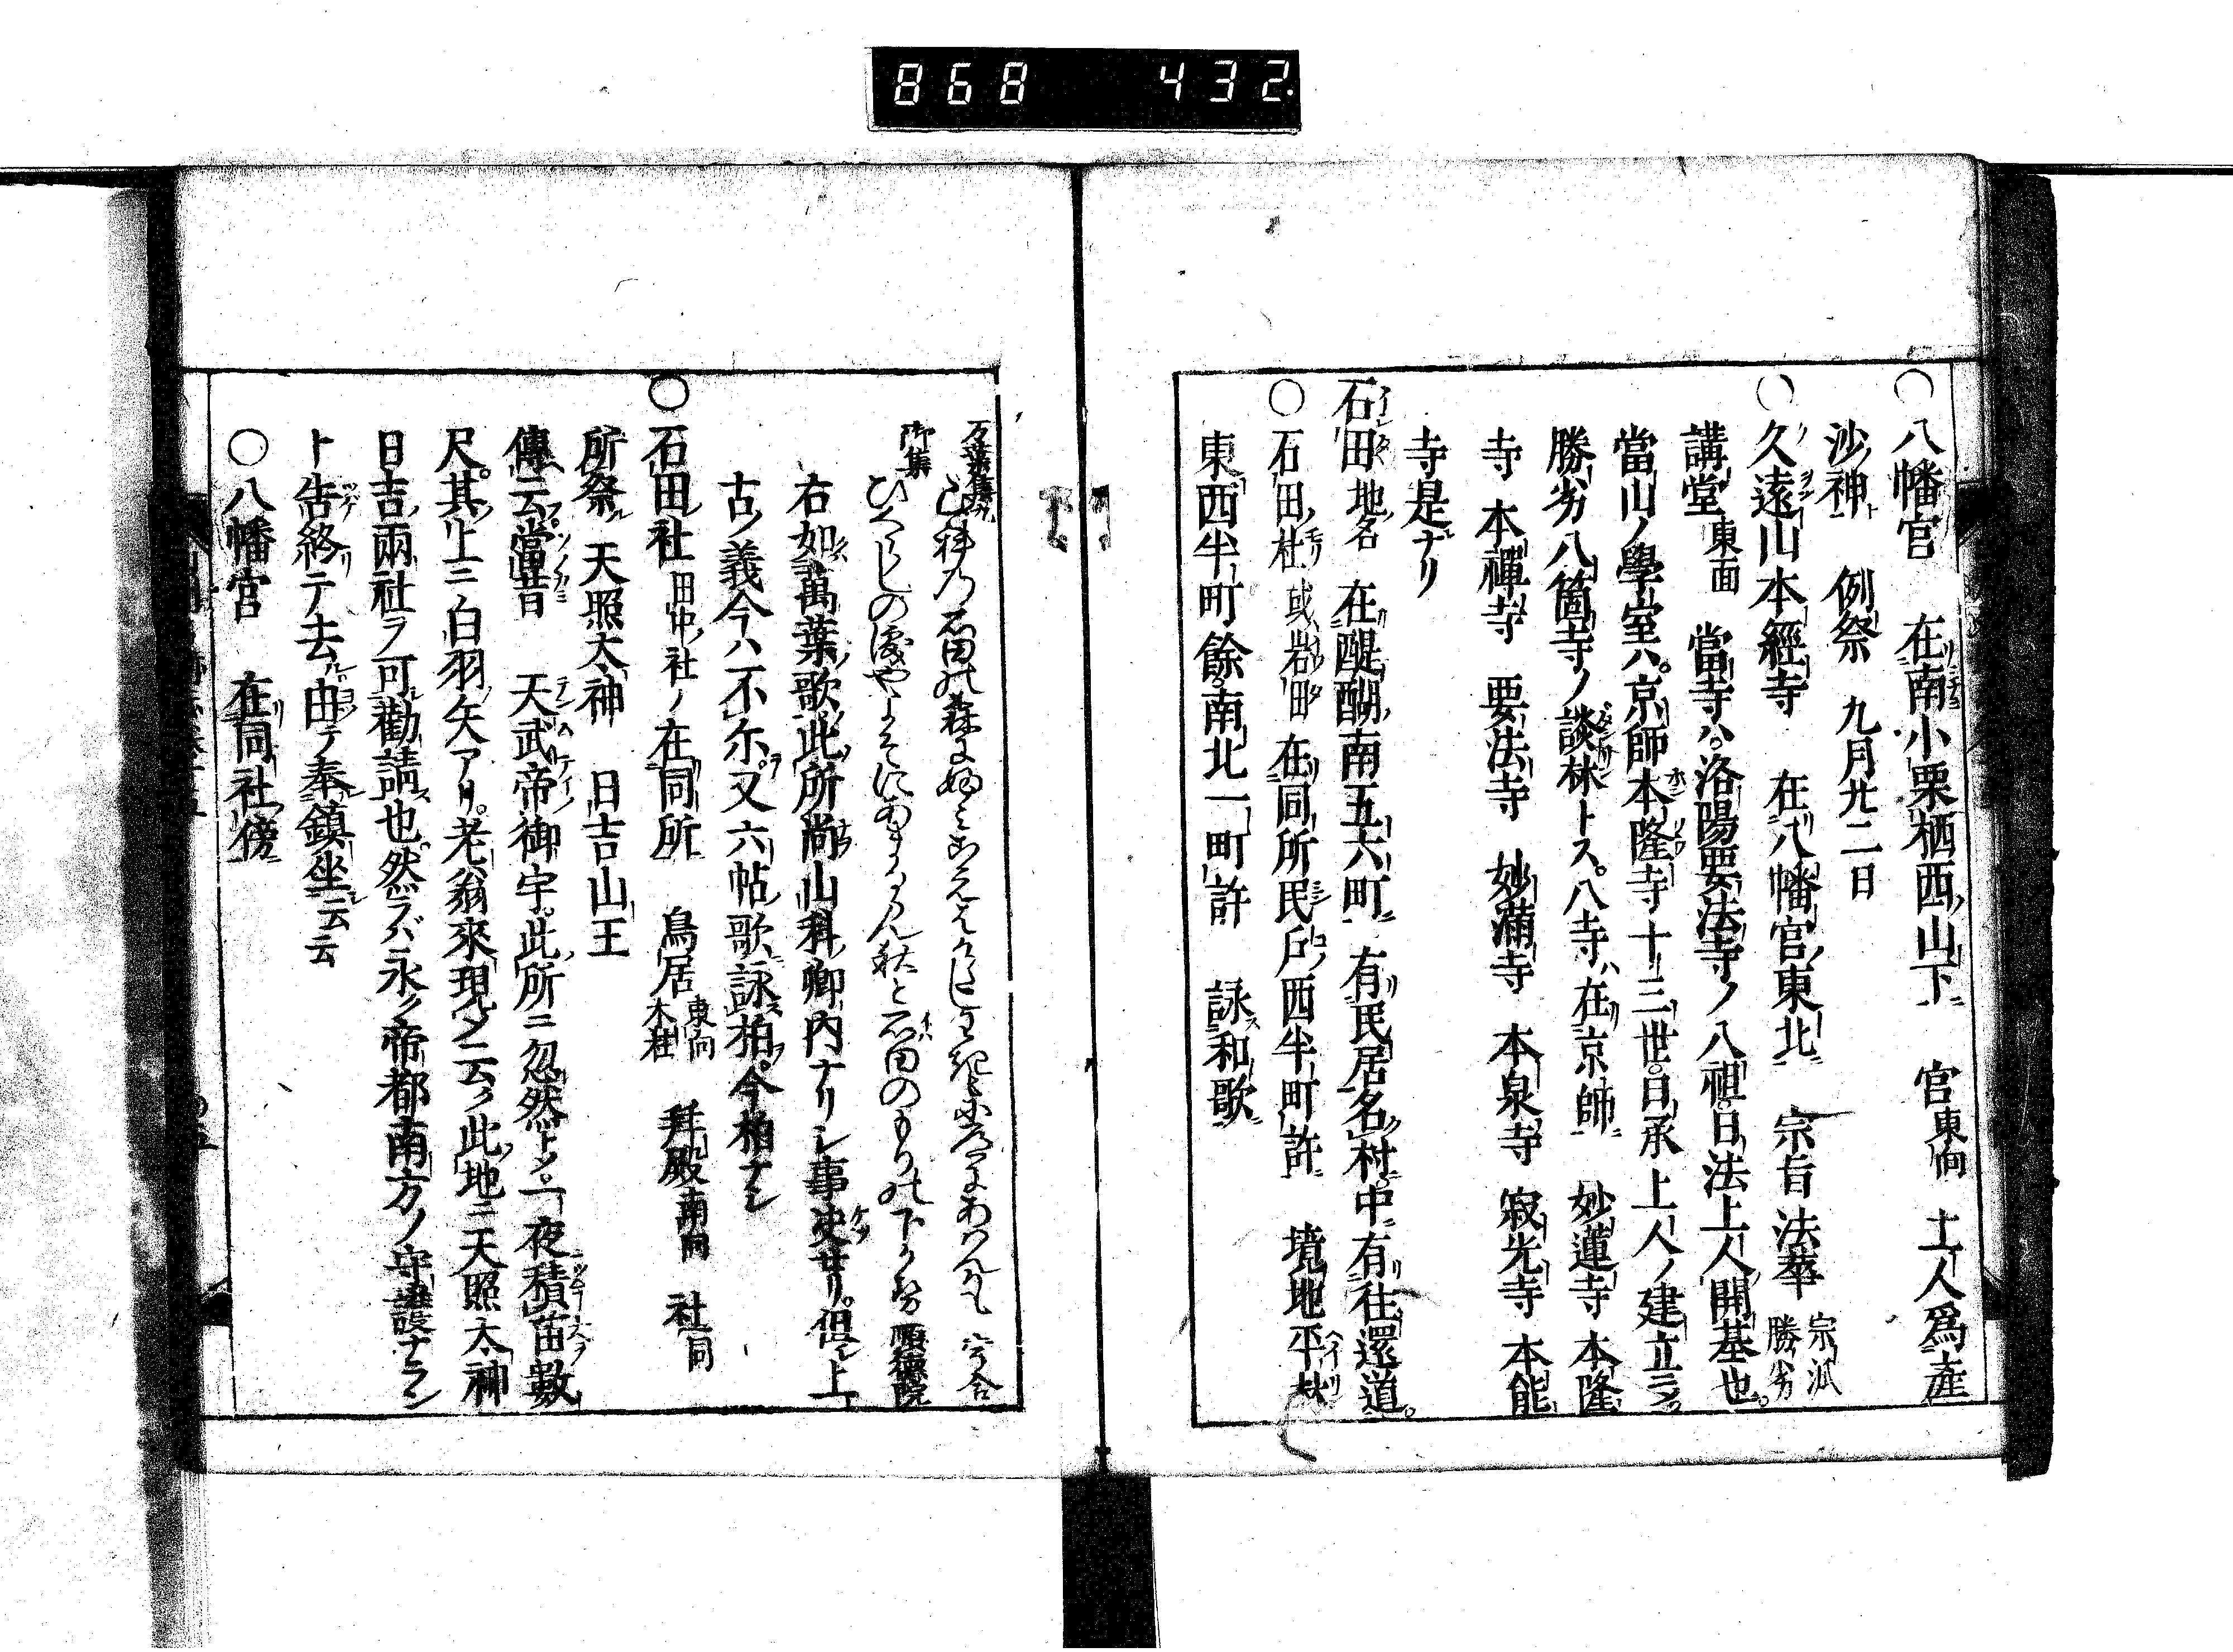 868 432
○八幡宮 在南小栗栖西山下 宮東向 土人爲産
沙神 例祭 九月廿二日
○久遠山本經寺 在八幡宮東北 宗旨法華 宗派勝劣
講堂東面 當寺ハ洛陽要法寺ノ八祖日法上人開基也
當山ノ學室ハ京師本隆寺十三世日承上人ノ建立ニメ
勝劣八箇寺ノ談林トス八寺ハ在京師 妙蓮寺 本隆
寺 本禪寺 要法寺 妙滿寺 本泉寺 寂光寺 本能
寺是ナリ
石田地名 在醍醐南五六町 有民居名村中有往還道
○石田杜或岩田 在同所民戸西半町許 境地平林
東西半町餘南北一町許 詠和歌
万葉集九
御集 ひくらしの 石田のもりの下 順德院
右如萬葉歌此所尚山科卿内ナリシ事决せり但上
古ノ義今ハ不尓又六帖歌詠柏今柏ナシ
○石田社田中社ノ在同所 鳥居東向木柱 拜殿南向 社同
所祭 天照大神 日吉山王
傳云當昔 天武帝御宇此所ニ忽然ト乄一夜積苗數
尺其上ニ白羽矢アリ老翁來現乄云ク此地ニ天照太神
日吉兩社ヲ可勸請也然ラバ永ク帝都南方ノ守護ナラン
ト告終テ去由テ奉鎮坐云云
○八幡宮 在同社傍